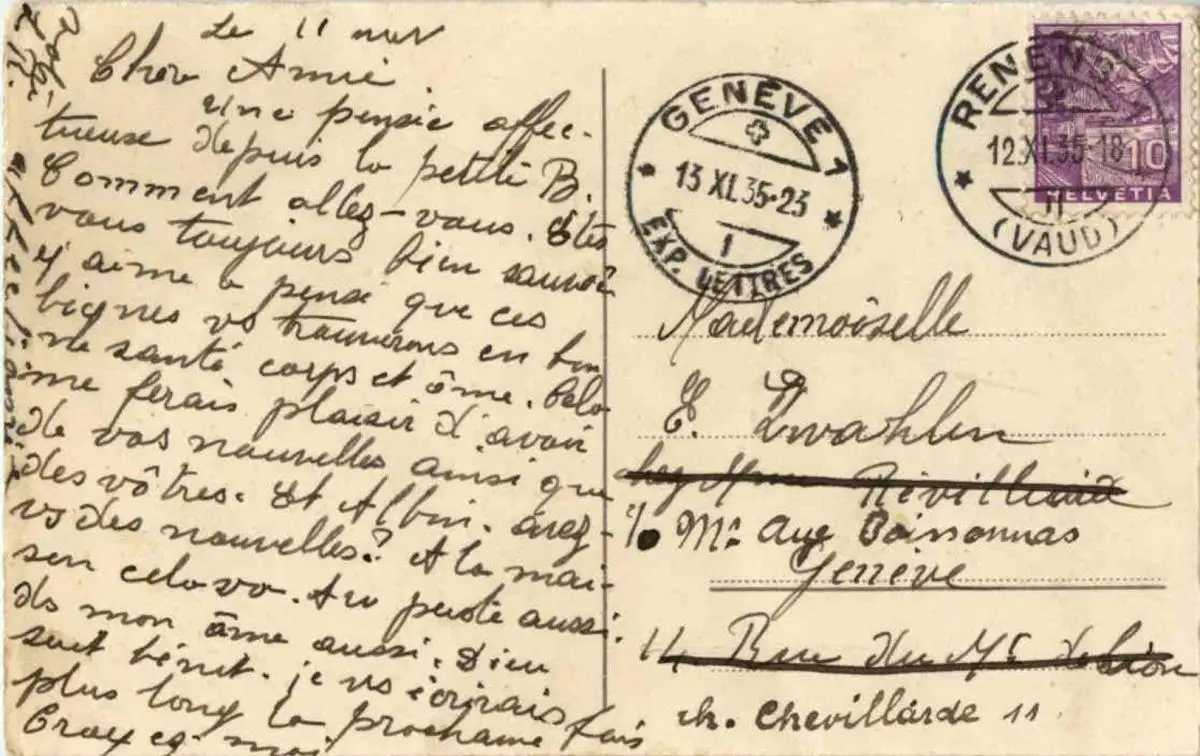 Le 11 nov
Cher Amie
Une pensée affec-
tueuse depuis la petite B.
Comment allez-vous. Êtes
vous toujours bien
y aime a pensé que ces
lignes vs trouverons en bon
ne santé corps et âme. Cela
me ferais plaisir d'avoir
de vos nouvelles ainsi que
des vôtres. Et Albin. avez-
vs des nouvelles? A la mai-
son cela va. Au poste aussi.
ds mon âme aussi. Dieu
soit bénit. je vs écrirais
plus long la prochaine fois
Croyez moi
GENÈVE 1
13 XI.35-23
1
EXP. LETTRES
RENENS
12.XI.35-18
II
(VAUD)
10
HELVETIA
Mademoiselle
E. Zwahlen
chez Mme Révilliod
c/o Mr Aug Boissonnas
Genève
14 Rue du Mt de Sion
ch. Chevillarde 11